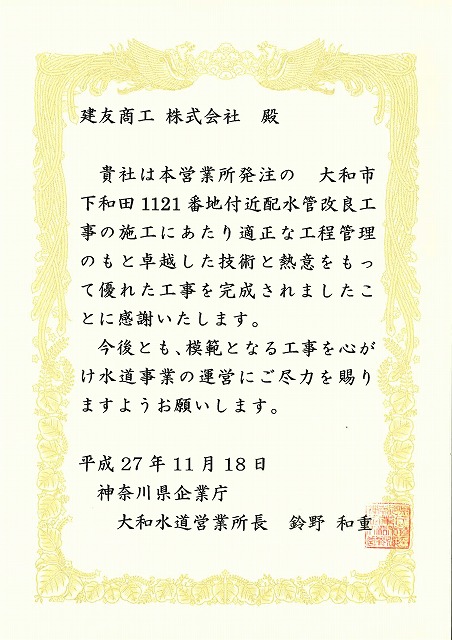 建友商工 株式会社　殿
　貴社は本営業所発注の　大和市
下和田1121番地付近配水管改良工
事の施工にあたり適正な工程管理
のもと卓越した技術と熱意をもっ
て優れた工事を完成されましたこ
とに感謝いたします。
　今後とも、模範となる工事を心が
け水道事業の運営にご尽力を賜り
ますようお願いします。
平成27年11月18日
神奈川県企業庁
大和水道営業所長　鈴野 和重